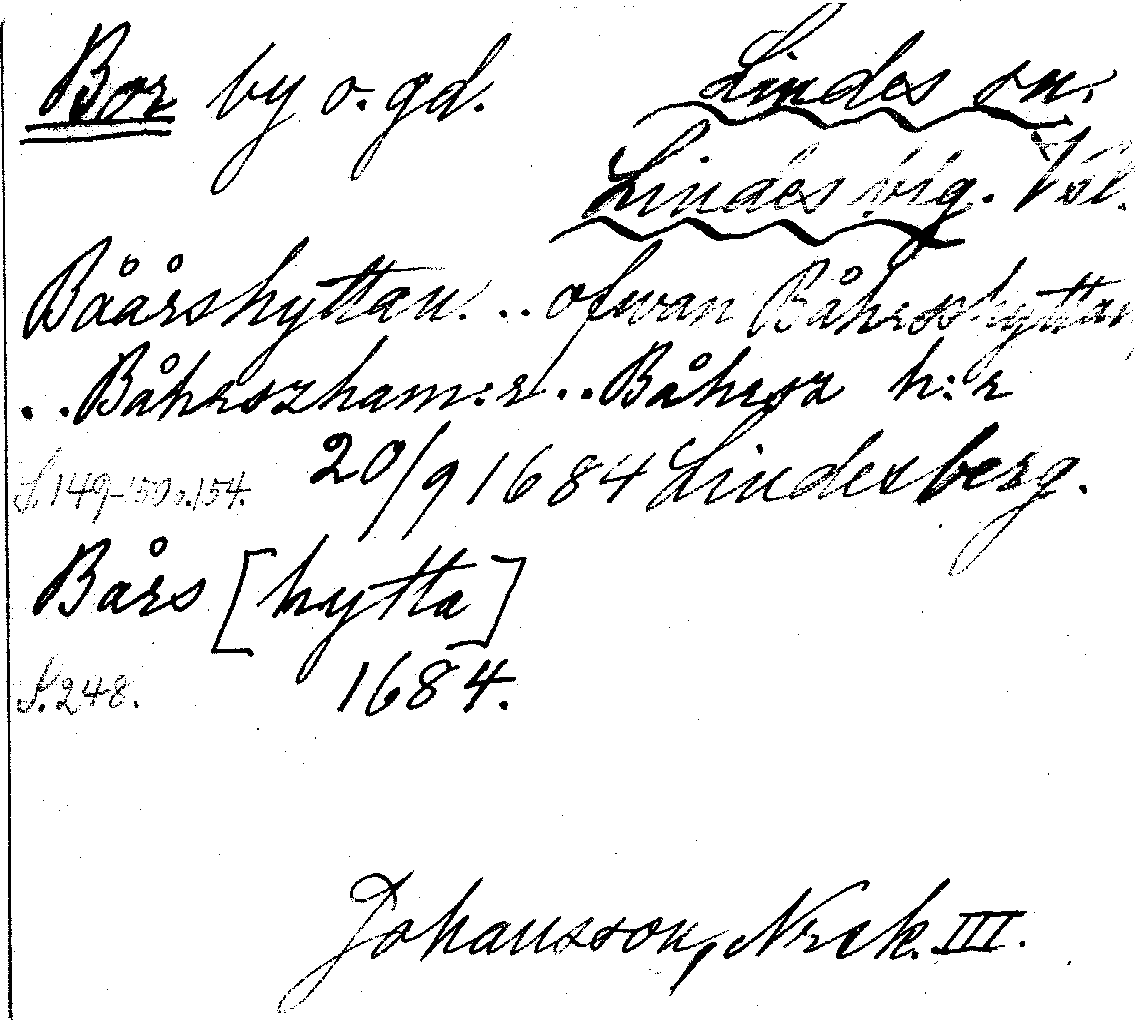 Bor by o. gd. Lindes sn.
Lindes blg. Vsl.
Båårshyttan. .. ofwan Båhrsshyttan,
.. Båhrszham:r .. Båhrsz h:r
S. 149-150 o. 154. 20/9 1684 Lindesberg.
Bårs [hytta]
S. 248. 1684.
Johansson, Nrck. III.